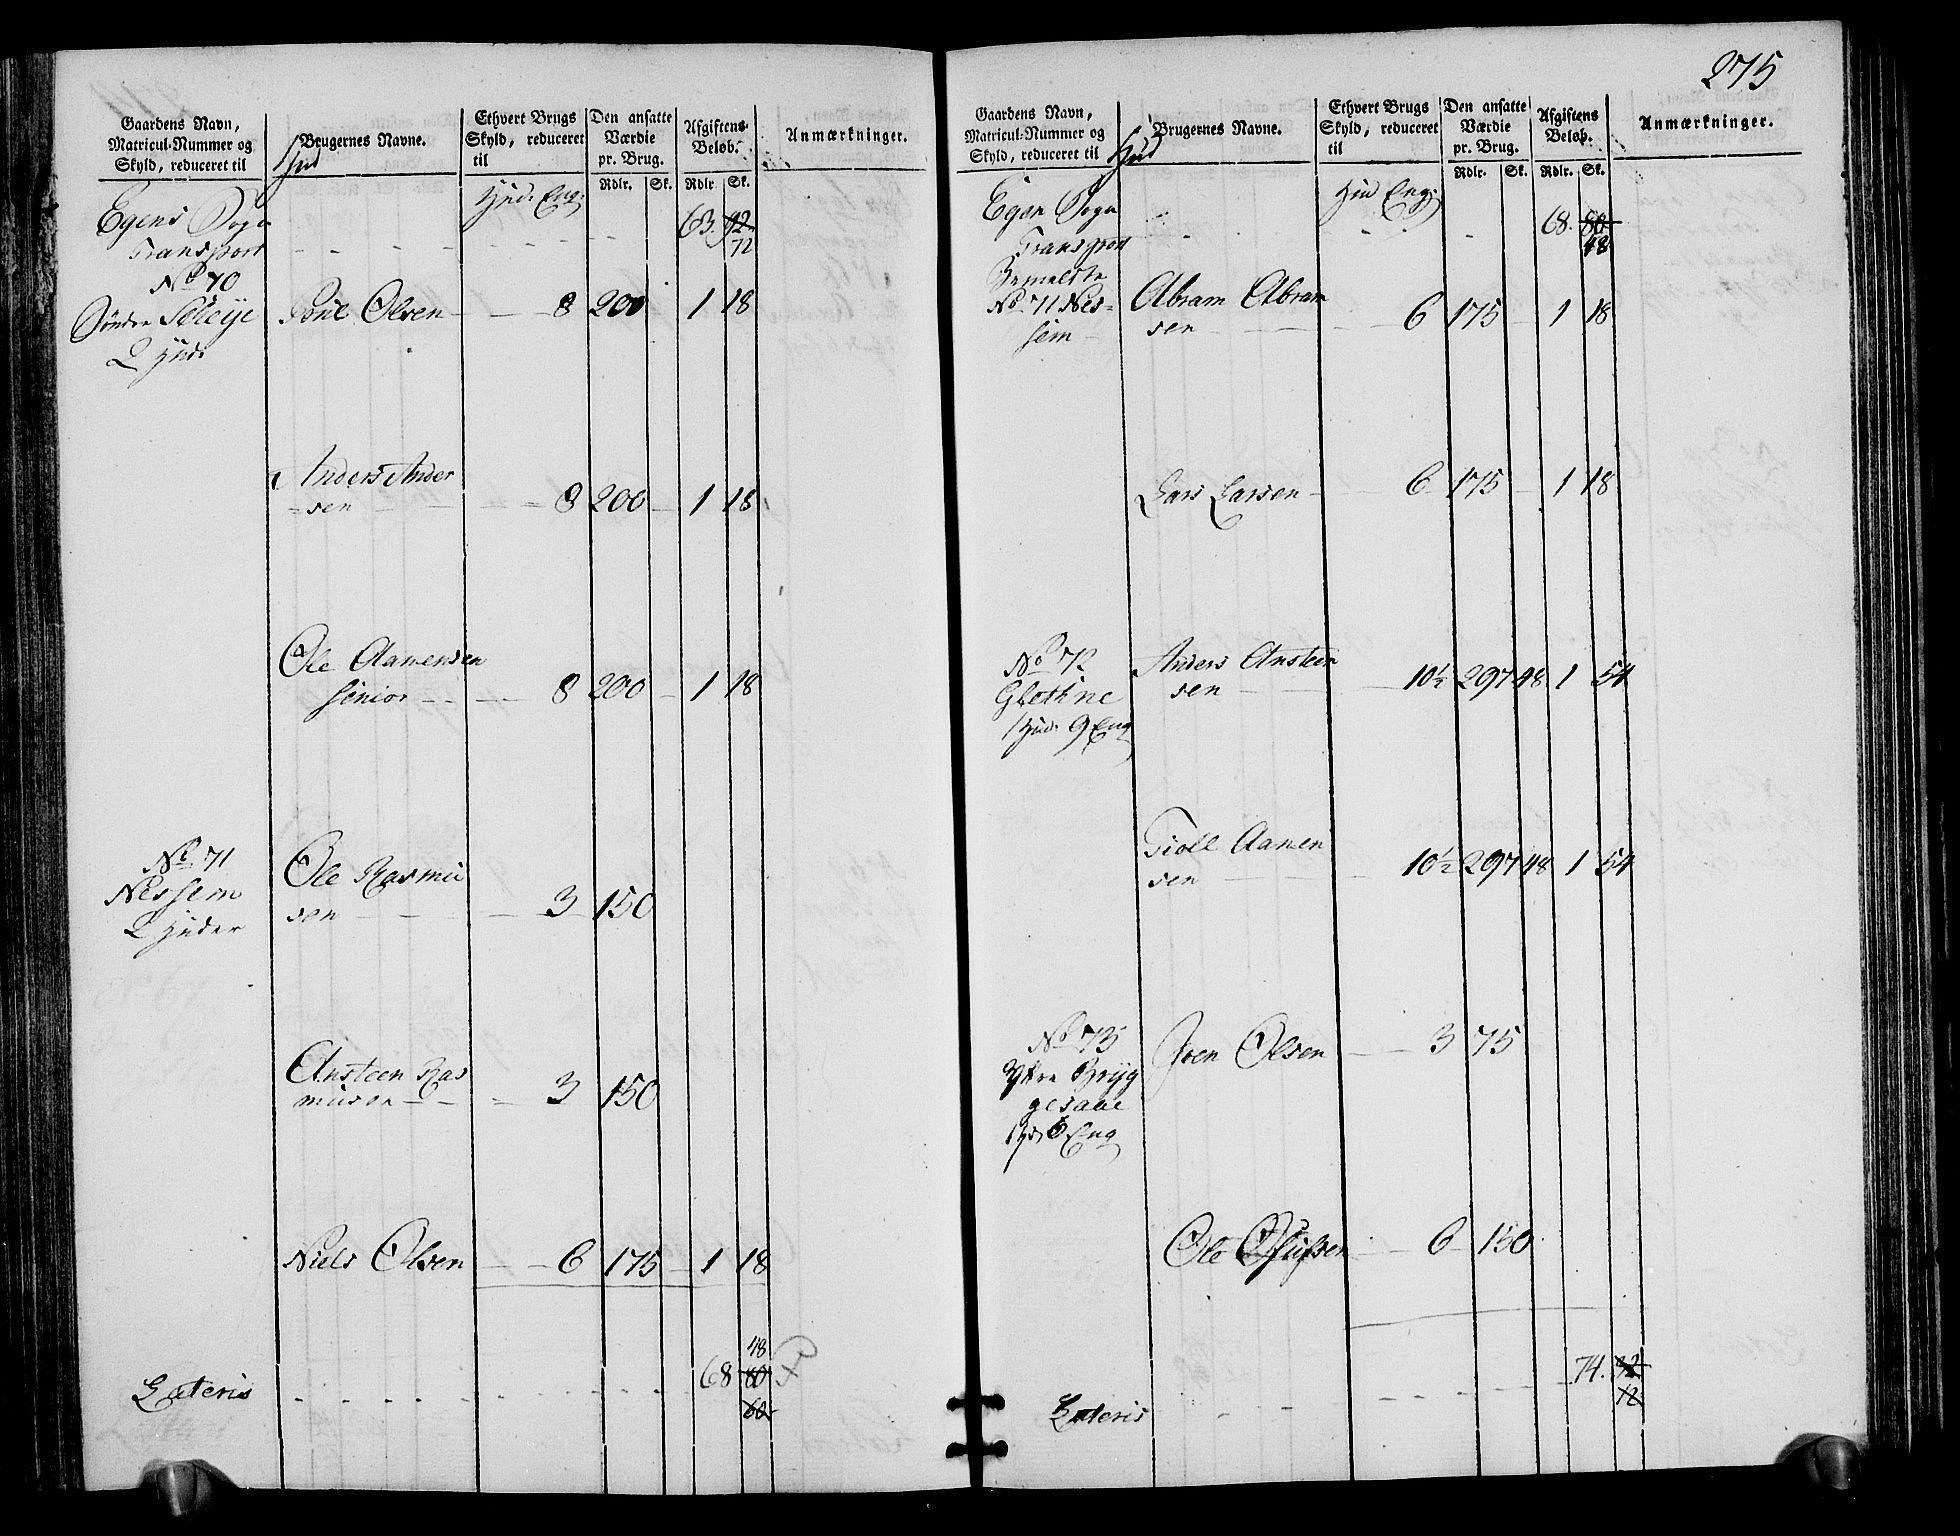 Gaardens Navn,
Matricul-Nummer og
Skyld, reduceret til
Hud
Brugernes Navne.
Ethvert Brugs
Skyld, reduceret
til
Den ansatte
Værdie
pr. Brug.
Afgiftens
Beløb.
Anmærkninger.
Rdlr. Sk. Rdlr. Sk.
Hud. Eng.
Egens Sogn
Transport 63. 92
72
No 70
Søndre Sæleije Poul Olsen 8 200 1 18
2 Hud
Anders Ander
sen 8 200 1 18
Ole Aamensen
senior 8 200 1 18
No 71
Nessem
2 Huder
Ole Rasmu
sen 3 150
Ansteen Ras
musen 3 150
Niels Olsen 6 175 1 18
48
Lateris 68 80
60
275
Gaardens Navn,
Matricul-Nummer og
Skyld, reduceret til
Hud
Brugernes Navne.
Ethvert Brugs
Skyld, reduceret
til
Den ansatte
Værdie
pr. Brug.
Afgiftens
Beløb.
Anmærkninger.
Rdlr. Sk. Rdlr. Sk.
Hud Eng.
Egen Sogn
Transport 68. 80
48
Bemeldte
No 71 Nes-
sem
Abram Abram
sen 6 175 1 18
Lars Larsen 6 175 1 18
No 72
Glethne
1 Hud. 9 Eng
Anders Ansteen
sen 10½ 297 48 1 54
Tioll Aamen
sen 10½ 297 48 1 54
No 73
Ytre Bryg
gesaae
1 Hd 6 Eng
Joen Olsen 3 75
Ole Olufsen 6 150
Lateris 74. 92
12